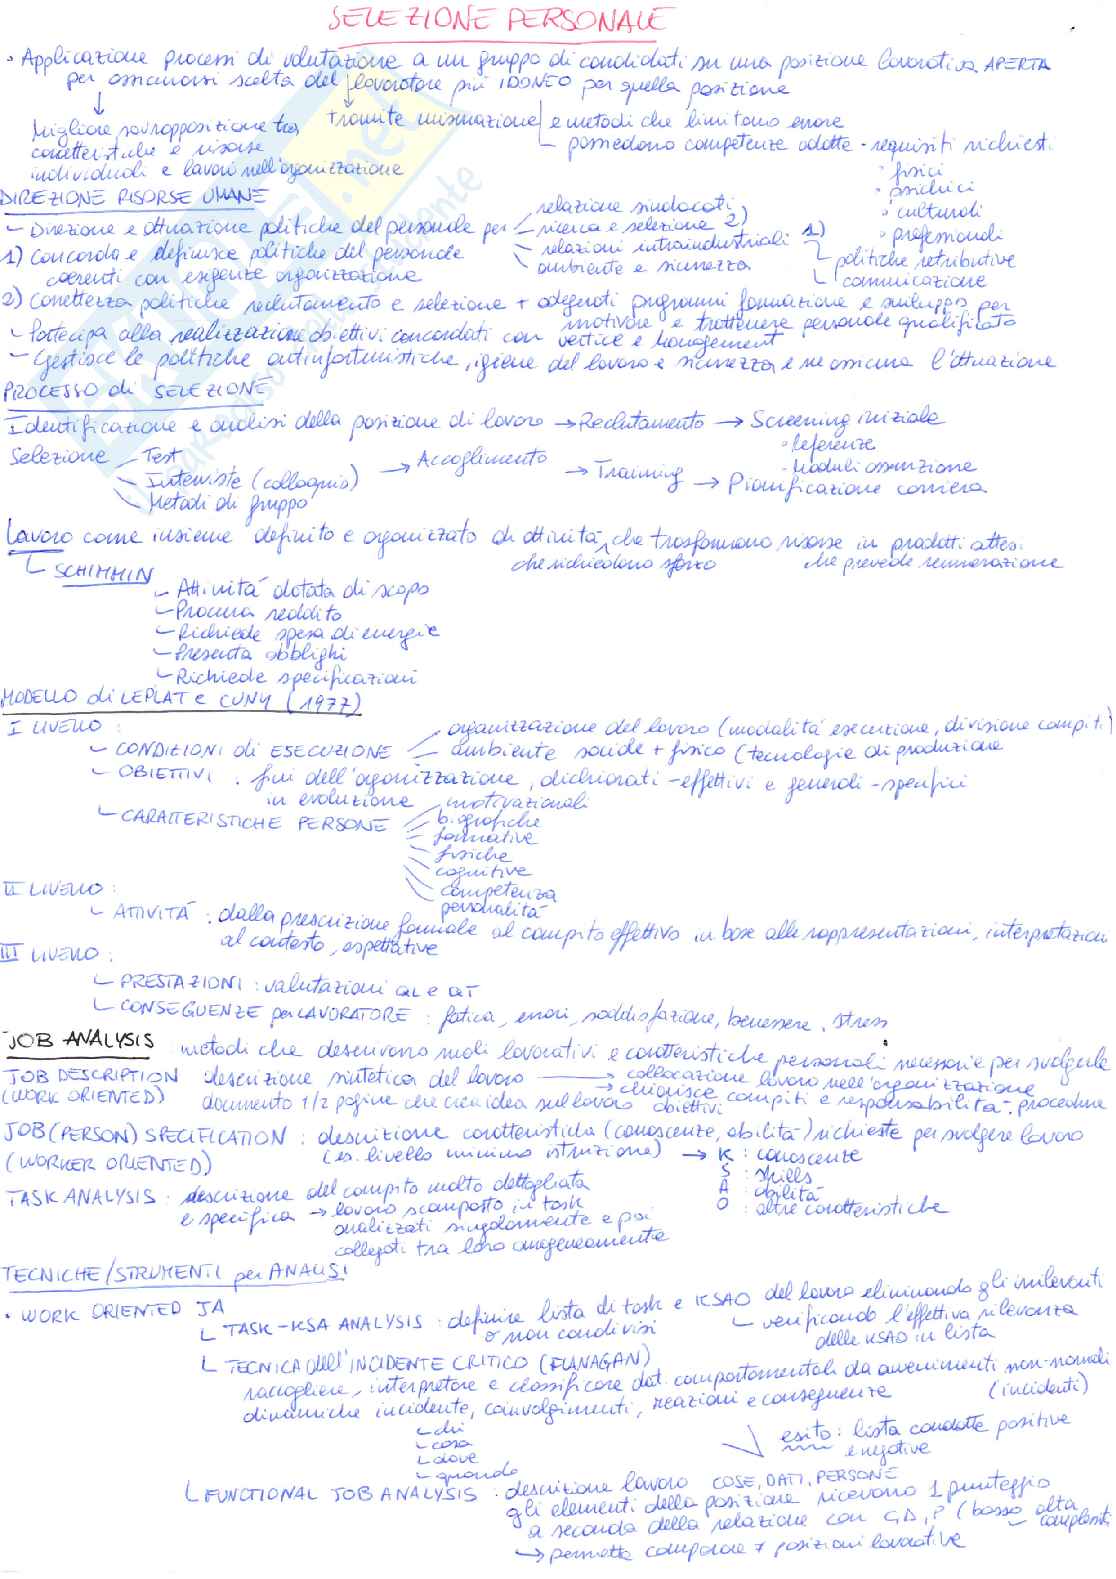 SELEZIONE PERSONALE
• Applicazione processi di valutazione a un gruppo di candidati su una posizione lavorativa APERTA
per assicurarsi scelta del lavoratore più IDONEO per quella posizione
↓ Migliore sovrapposizione tra
caratteristiche e risorse
individuali e lavoro nell'organizzazione
↓ tramite misurazione e metodi che limitano errore
possedono competenze adatte - requisiti richiesti
• fisici
• psichici
• culturali
• professionali
DIREZIONE RISORSE UMANE
Direzione e attuazione politiche del personale per
relazione sindacati
ricerca e selezione 2)
relazioni intraindustriali
ambiente e sicurezza
1)
politiche retributive
comunicazione
1) Concorda e definisce politiche del personale
coerenti con esigenze organizzazione
2) Correttezza politiche reclutamento e selezione + adeguati programmi formazione e sviluppo per
motivare e trattenere personale qualificato
Partecipa alla realizzazione obiettivi concordati con vertice e Management
Gestisce le politiche antinfortunistiche, igiene del lavoro e sicurezza e ne assicura l'attuazione
PROCESSO di SELEZIONE
Identificazione e analisi della posizione di lavoro → Reclutamento → Screening iniziale
• Referenze
• Moduli assunzione
Selezione
Test
Interviste (colloquio)
Metodi di gruppo
→ Accoglimento → Training → Pianificazione carriera
Lavoro come insieme definito e organizzato di attività, che trasformano risorse in prodotti attesi
che richiedono sforzo
che prevede remunerazione
SCHIMMIN
Attività dotata di scopo
Procura reddito
Richiede spesa di energie
Presenta obblighi
Richiede specificazioni
MODELLO di LEPLAT e CUNY (1977)
I LIVELLO :
CONDIZIONI di ESECUZIONE
organizzazione del lavoro (modalità esecuzione, divisione compiti)
ambiente sociale + fisico (tecnologie di produzione
OBIETTIVI : fini dell'organizzazione, dichiarati - effettivi e generali - specifici
in evoluzione
CARATTERISTICHE PERSONE
motivazionali
biografiche
formative
fisiche
cognitive
competenza
personalità
II LIVELLO :
ATTIVITÀ : dalla prescrizione formale al compito effettivo in base alle rappresentazioni, interpretazioni
al contesto, aspettative
III LIVELLO :
PRESTAZIONI : valutazioni QL e QT
CONSEGUENZE per LAVORATORE : fatica, errori, soddisfazione, benessere, stress
JOB ANALYSIS : metodi che descrivono ruoli lavorativi e caratteristiche personali necessarie per svolgerle
JOB DESCRIPTION descrizione sintetica del lavoro → collocazione lavoro nell'organizzazione
(WORK ORIENTED) documento 1/2 pagine che crea idea sul lavoro → chiarisce compiti e responsabilità, procedure
obiettivi
JOB (PERSON) SPECIFICATION : descrizione caratteristica (conoscenze, abilità) richieste per svolgere lavoro
(WORKER ORIENTED) (es. livello minimo istruzione) → K : conoscenze
S : skills
A : abilità
O : altre caratteristiche
TASK ANALYSIS : descrizione del compito molto dettagliata
e specifica → lavoro scomposto in task
analizzati singolarmente e poi
collegati tra loro omogeneamente
TECNICHE/STRUMENTI per ANALISI
• WORK ORIENTED JA
TASK-KSA ANALYSIS : definire lista di task e KSAO del lavoro eliminando gli irrilevanti
o non condivisi
verificando l'effettiva rilevanza
delle KSAO in lista
TECNICA dell'INCIDENTE CRITICO (FLANAGAN)
raccogliere, interpretare e classificare dati comportamentali da avvenimenti non-normali
(incidenti)
dinamiche incidente, coinvolgimenti, reazioni e conseguenze
chi
cosa
dove
quando
esito : lista condotte positive
e negative
FUNCTIONAL JOB ANALYSIS : descrizione lavoro COSE, DATI, PERSONE
gli elementi della posizione ricevono 1 punteggio
a seconda della relazione con C, D, P (bassa - alta
complessità
→ permette comparare ≠ posizioni lavorative